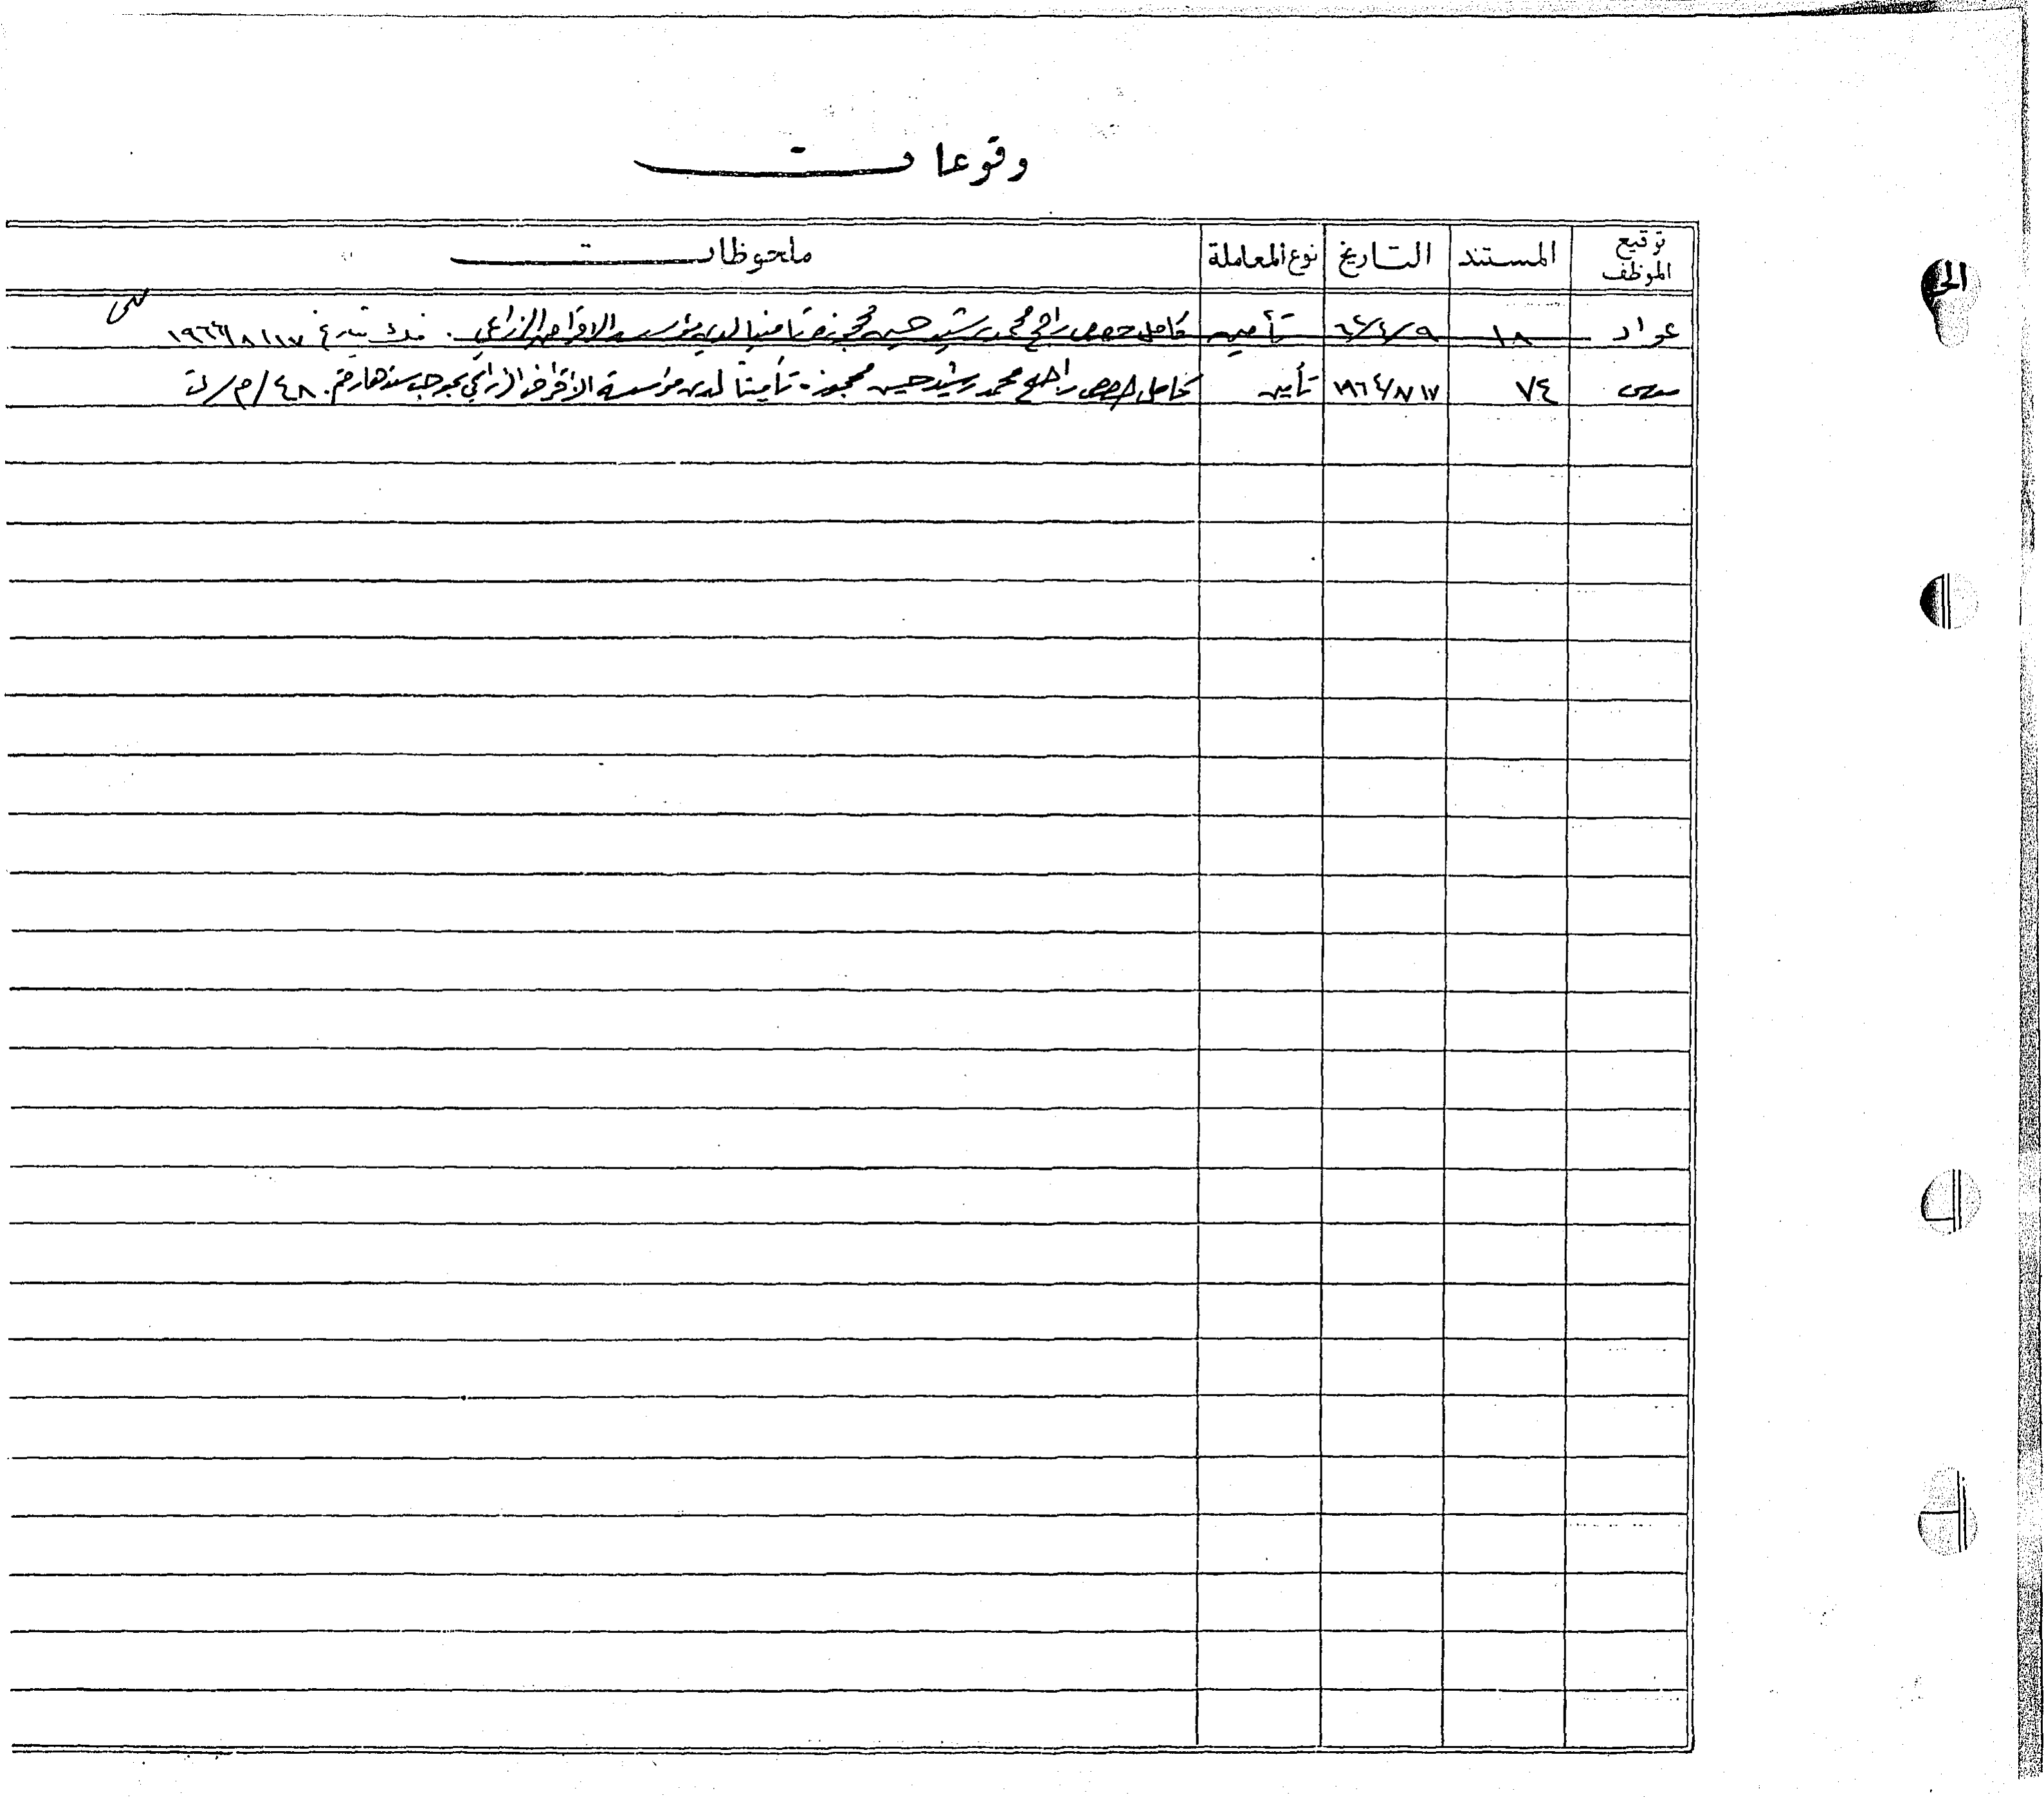 وقوعات
توقيع الموظف المستند التاريخ نوع المعاملة ملحوظات
عواد ١٨ ٦٤/٤/٩ تأمين كامل حصص راجح محمد رشيد حسين محجوزة تامينا لدى مؤسسة الاقراض الزراعي . فك بتاريخ
٧٤ ١٩٦٤/٨/١٧ تأمين كامل حصص راجح محمد رشيد حسين محجوزة تأميناً لدى مؤسسة الاقراض الزراعي بموجب سندها رقم ٤٨/م/ت